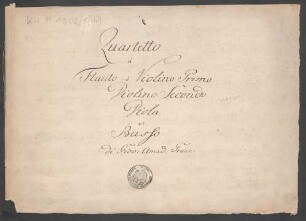 Quartetto
a
Flauto o Violino Primo
Violino Secondo
Viola
et
Basso
di Giov. Amad.